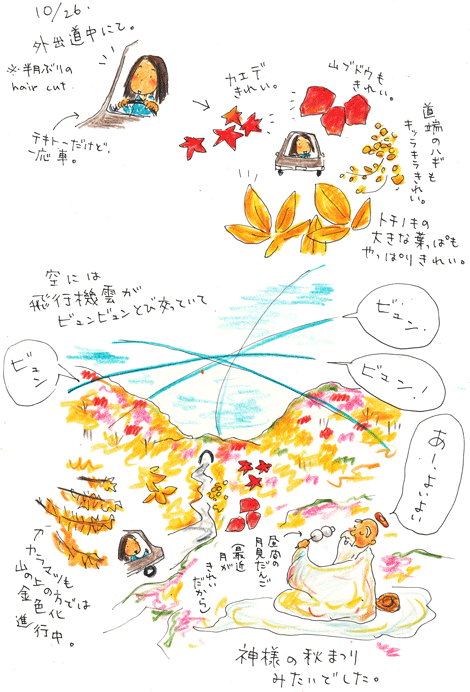 10/26.
外出道中にて。
※半月ぶりの
hair cut.
テキトーだけど、
一応車。
カエデ
きれい。
山ブドウも
きれい。
道端のハギも
キッラキラきれい。
トチノキの
大きな葉っぱも
やっぱりきれい。
空には
飛行機雲が
ビュンビュンとび交っていて
ビュン.
ビュン!
ビュン
あー、よいよい
カラマツも
山の上の方では
金色化
進行中。
昼間の
月見だんご
最近
月が
きれい
だから
神様の秋まつり
みたいでした。